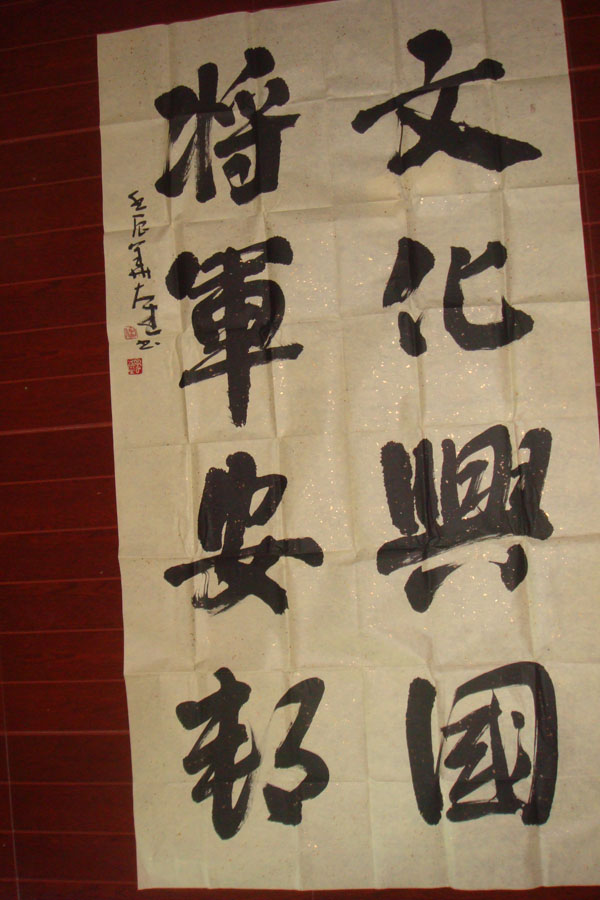 文化興國
將軍安邦
壬辰年